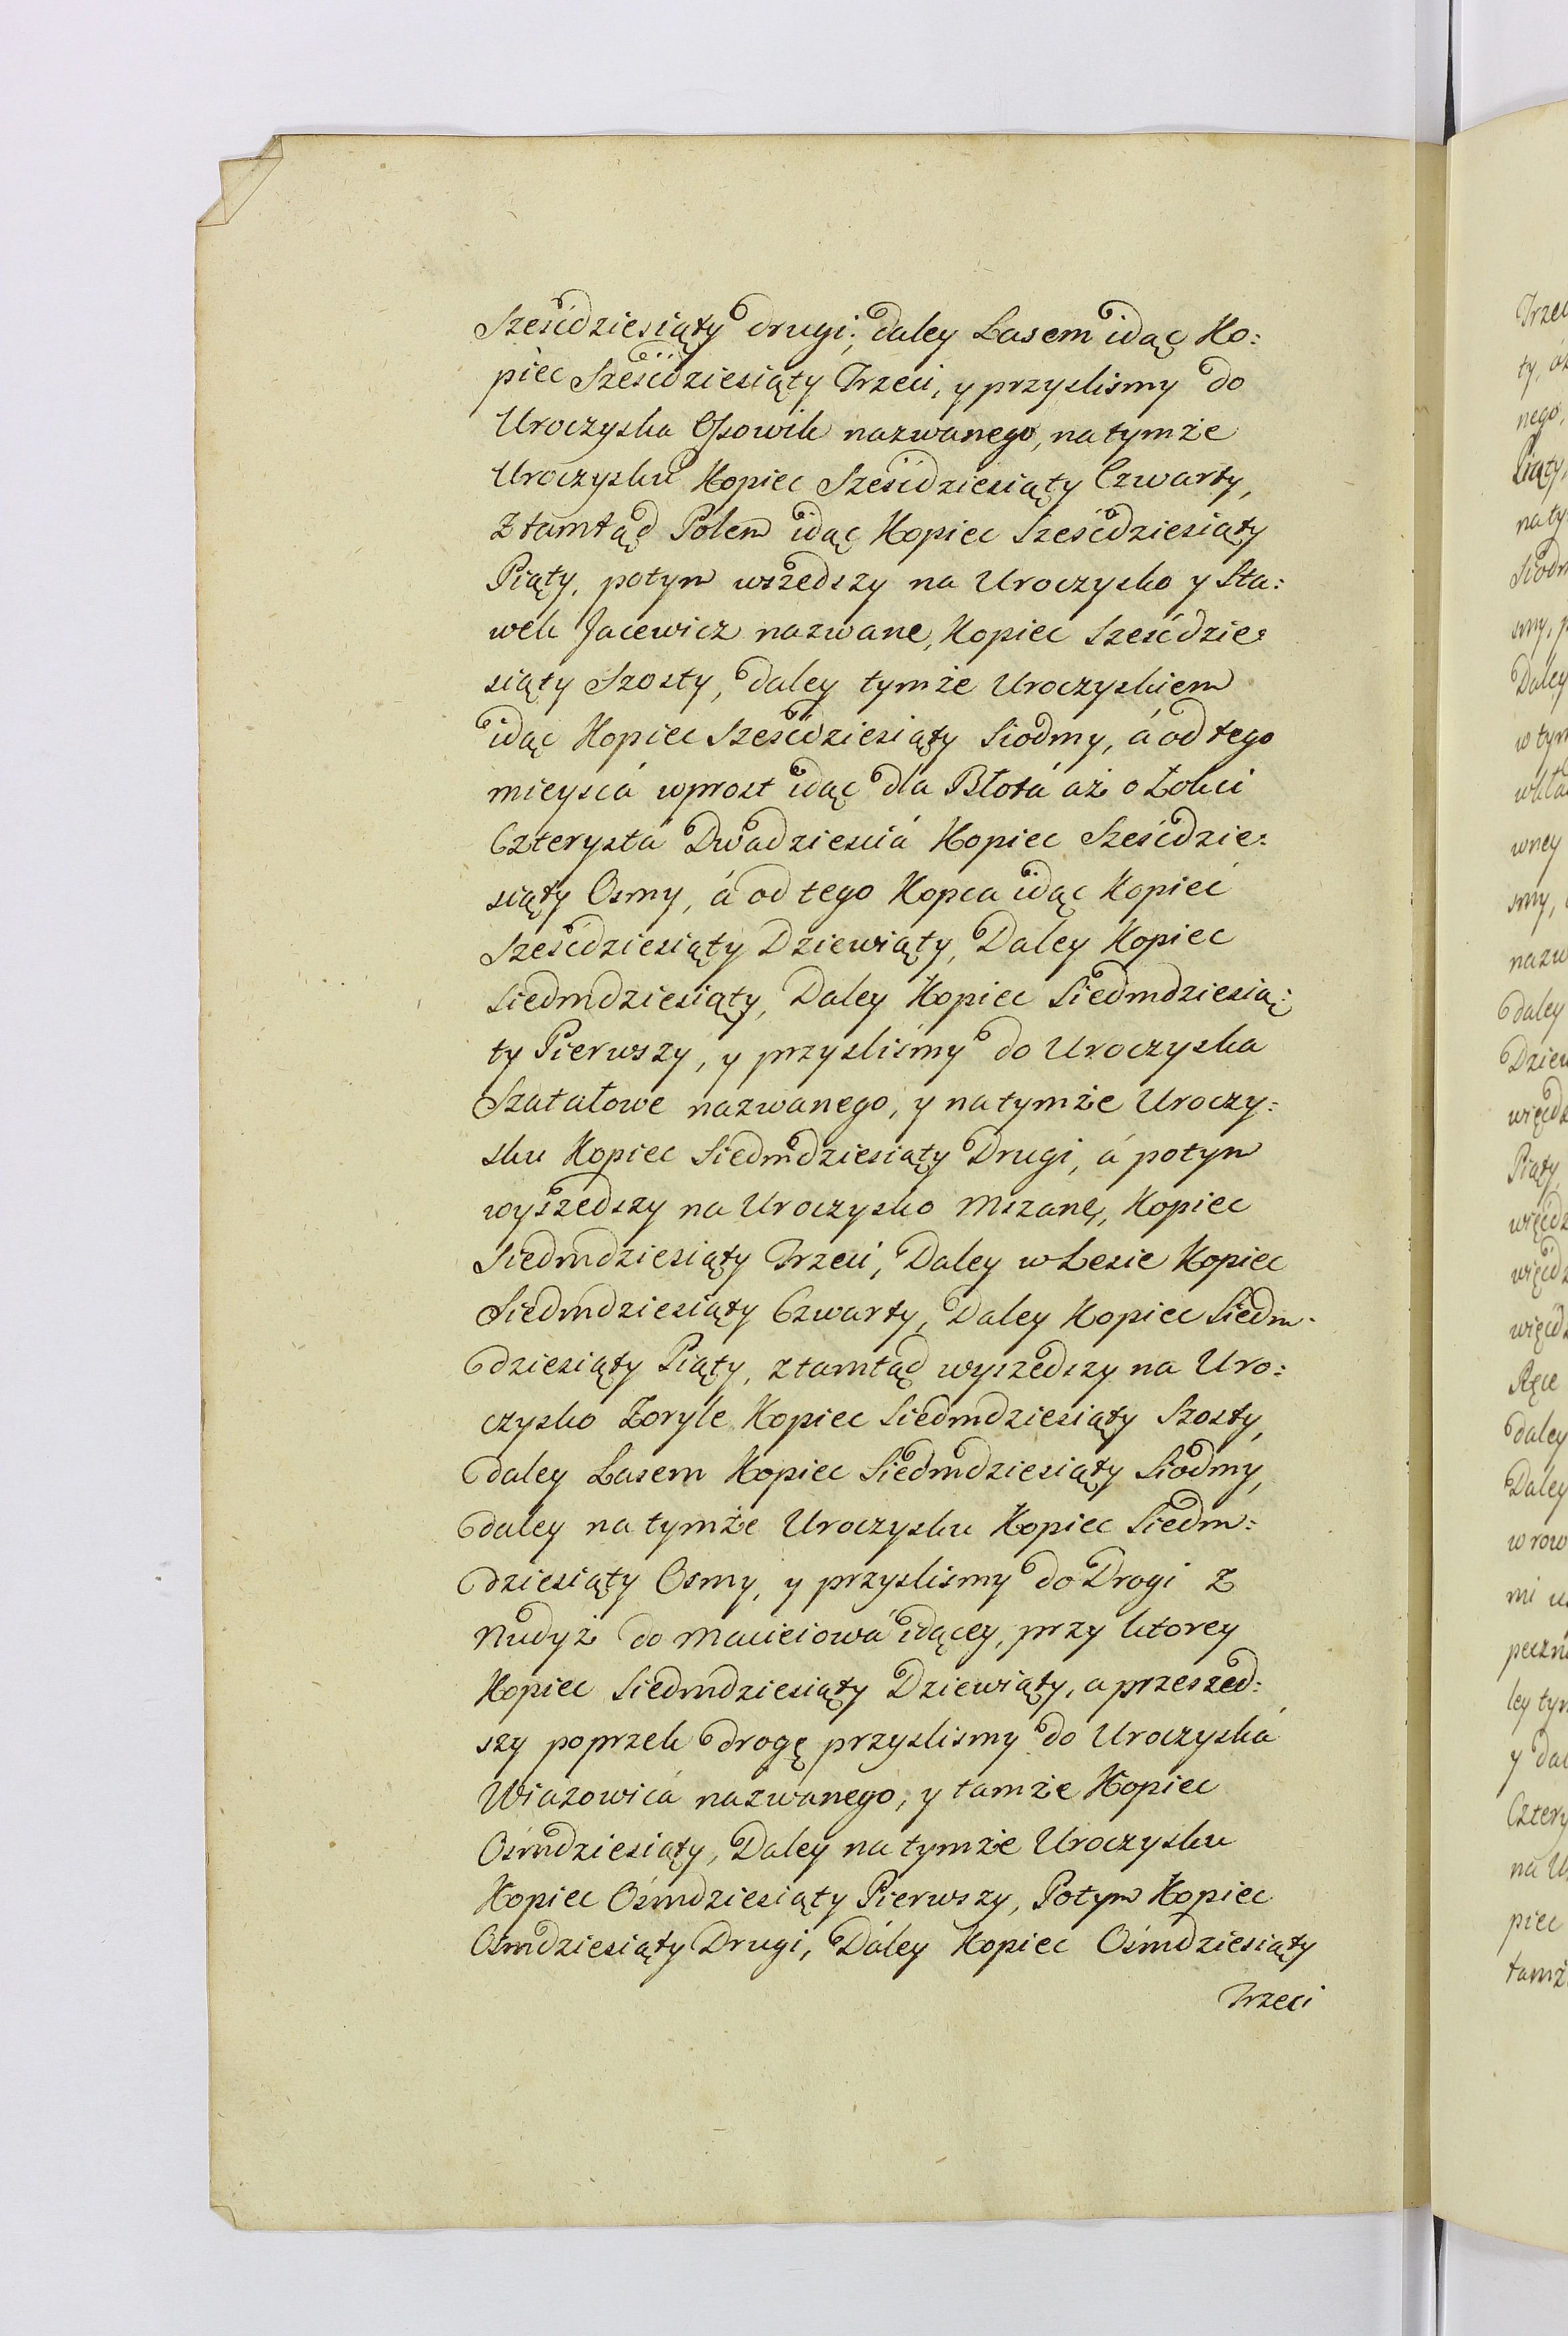 Sześćdziesiąty drugi; daley Lasem idąc Ko:
piec Sześćdziesiąty Trzeci, y przyslismy do
Uroczyska Ossowik nazwanego, na tymże
Uroczysku Kopiec Sześćdziesiąty Czwarty,
Ztamtąd Polem idąc Kopiec Sześćdziesiąty
Piąty, potym wszedszy na Uroczysko y Sta:
wek Jacewicz nazwane, Kopiec Sześćdzie:
siąty Szosty, daley tymże Uroczyskiem
idąc Kopiec Sześćdziesiąty Siodmy, á od tego
mieyscá wprost idąc dla Błotá aż o Łokci
Czterystá Dwadziesciá Kopiec Sześćdzie:
siąty Osmy, á od tego Kopca idąc Kopiec
Sześćdziesiąty Dziewiąty, Daley Kopiec
Siedmdziesiąty, Daley Kopiec Siedmdziesią:
ty Pierwszy, y przyslismy do Uroczyska
Szatałowe nazwanego, y na tymże Uroczy:
sku Kopiec Siedmdziesiąty Drugi, á potym
wyszedszy na Uroczysko Mszanę, Kopiec
Siedmdziesiąty Trzeci, Daley w Lesie Kopiec
Siedmdziesiąty Czwarty, Daley Kopiec Siedm:
dziesiąty Piąty, ztamtąd wyszedszy na Uro:
czysko Zoryle Kopiec Siedmdziesiąty Szosty,
daley Lasem Kopiec Siedmdziesiąty Siodmy,
daley na tymże Uroczysku Kopiec Siedm:
dziesiąty Osmy, y przyslismy do Drogi z
Nudyż do Macieiowá idącey, przy ktorey
Kopiec Siedmdziesiąty Dziewiąty, a przeszed:
szy poprzek drogę przyslismy do Uroczyská
Wiazowicá nazwanego, y tamże Kopiec
Ośmdziesiąty, Daley na tymże Uroczysku
Kopiec Ośmdziesiąty Pierwszy, Potym Kopiec
Ośmdziesiąty Drugi, Dáley Kopiec Ośmdziesiąty
Trzeci